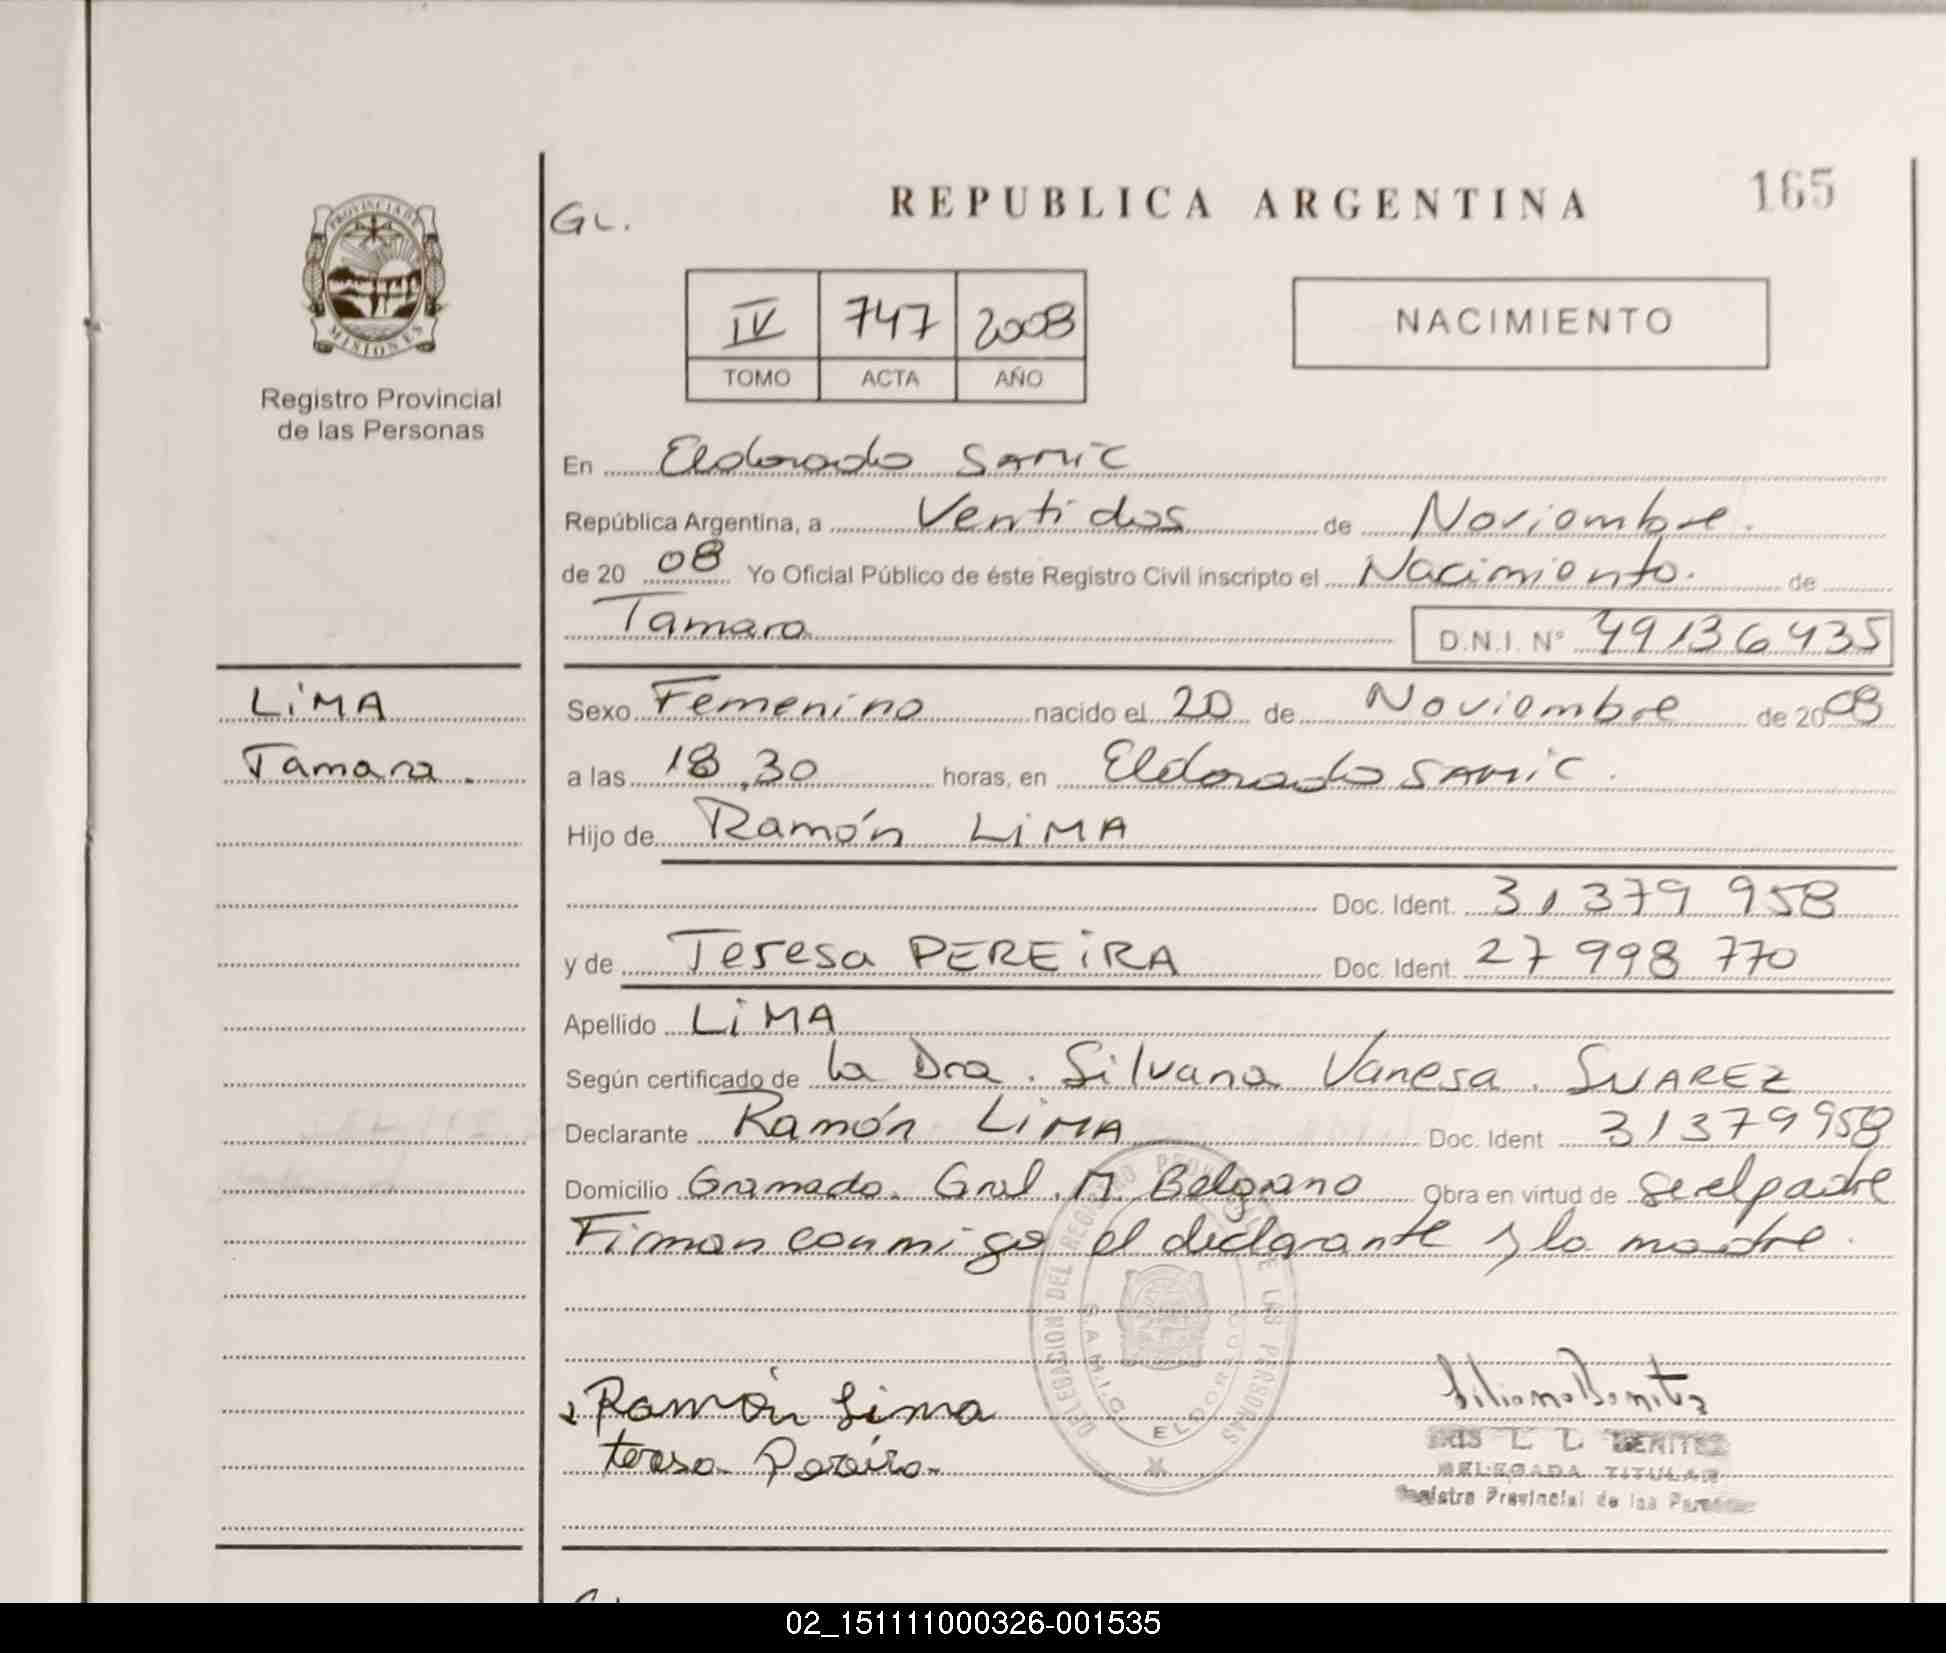 PROVINCIA DE
MISIONES
Registro Provincial
de las Personas
LiMA
Tamara.
GL.
REPUBLICA ARGENTINA
165
IV 747 2008
TOMO ACTA AÑO
NACIMIENTO
En Eldorado SAMIC
República Argentina, a Venti dos de Noviembre.
de 20 08 Yo Oficial Público de éste Registro Civil inscripto el Nacimiento. de
Tamara D.N.I. N° 49136435
Sexo Femenino nacido el 20 de Noviembre de 2008
a las 18,30 horas, en Eldorado SAMIC.
Hijo de Ramón LiMA
Doc. Ident. 31379 958
y de Teresa PEREiRA Doc. Ident. 27 998 770
Apellido LiMA
Según certificado de la Dra. Silvana Vanesa. SUAREZ
Declarante Ramón LiMA Doc. Ident 31379958
Domicilio Gramado. Gral. M. Belgrano Obra en virtud de ser el padre
Firman conmigo el declarante y la madre.
DELEGACION DEL REGISTRO PROVINCIAL DE LAS PERSONAS
S.A.M.I.C. ELDORADO
Ramón Lima
teresa Pereira
Liliana Benitez
L. L. BENITEZ
DELEGADA TITULAR
Registro Provincial de las Personas
02_151111000326-001535